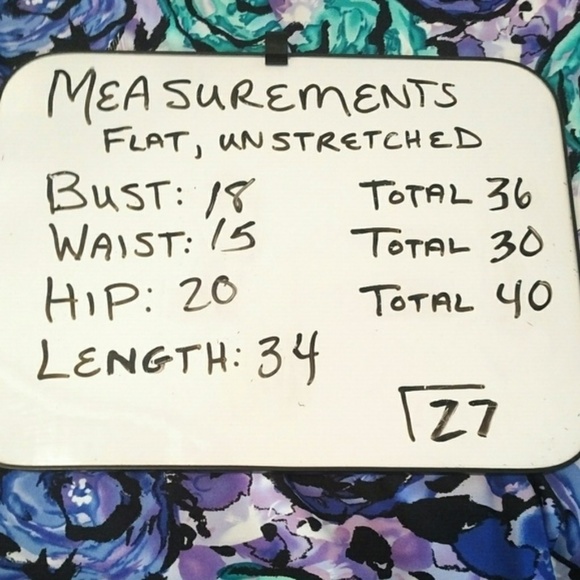 MEASUREMENTS
FLAT, UNSTRETCHED
BUST: 18 TOTAL 36
WAIST: 15 TOTAL 30
HIP: 20 TOTAL 40
LENGTH: 34
27